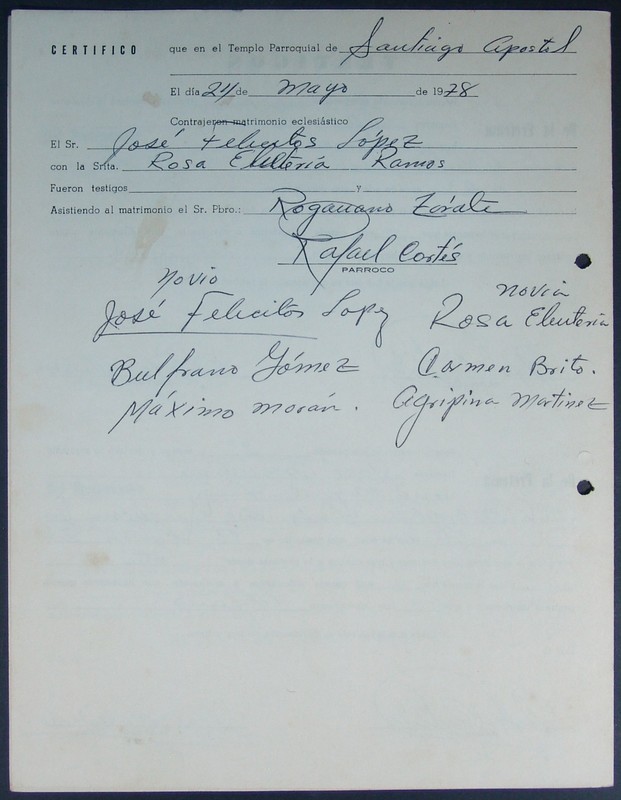 CERTIFICO que en el Templo Parroquial de Santiago Apostol
El día 24 de Mayo de 1978
Contrajeron matrimonio eclesiástico
El Sr. José Felicitos López
con la Srita. Rosa Eleuteria Ramos
Fueron testigos y
Asistiendo al matrimonio el Sr. Pbro.: Zárate
Rafael Cortés
PARROCO
novio novia
José Felicitos Lopez Rosa Eleuteria
Bulfrano Gómez Carmen Brito.
Máximo morán. Agripina Martinez